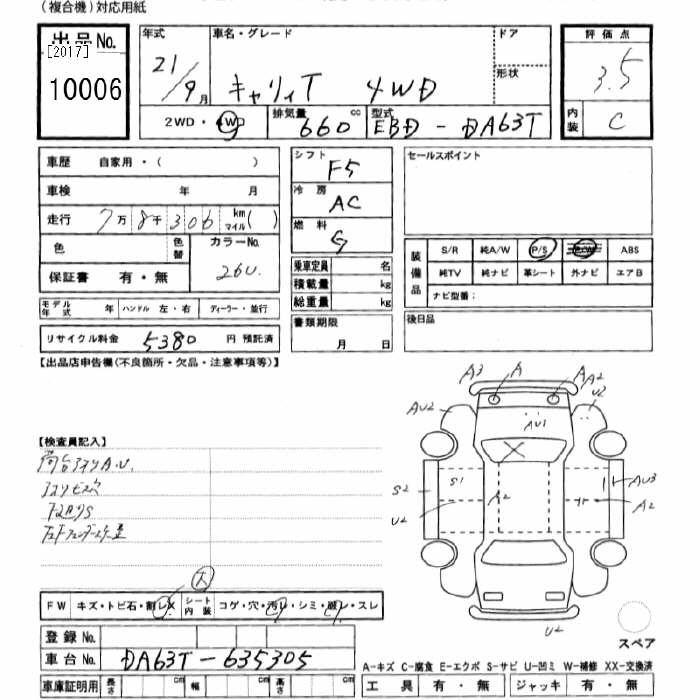 (複合機)対応用紙
出品No.
[2017]
10006
年式 21/9月
車名・グレード キャリィT 4WD
ドア
形状
評価点 3.5
内装 C
2WD・4WD
排気量 660 cc
型式 EBD-DA63T
車歴 自家用・( )
車検 年 月
走行 7万8千306 km マイル( )
色
色替
カラーNo. 26U.
保証書 有・無
モデル年式 年 ハンドル 左・右 ディーラー・並行
リサイクル料金 5380 円 預託済
シフト F5
冷房 AC
燃料 G
乗車定員 名
積載量 kg
総重量 kg
書類期限
月 日
セールスポイント
装備品
S/R 純A/W P/S P/W ABS
純TV 純ナビ 革シート 外ナビ エアB
ナビ型番:
後日品
【出品店申告欄(不良箇所・欠品・注意事項等)】
【検査員記入】
下廻りS
A3 A A A2
U2
AU2
AU1
S1
S2
A2
U2
AU3
A2
U2
大
FW キズ・トビ石・割レX シート内装 コゲ・穴・汚レ・シミ・破レ・スレ
登録No.
車台No. DA63T-635305
車庫証明用 長さ cm 幅 cm 高さ cm
スペア
A-キズ C-腐食 E-エクボ S-サビ U-凹ミ W-補修 XX-交換済
工具 有・無 ジャッキ 有・無